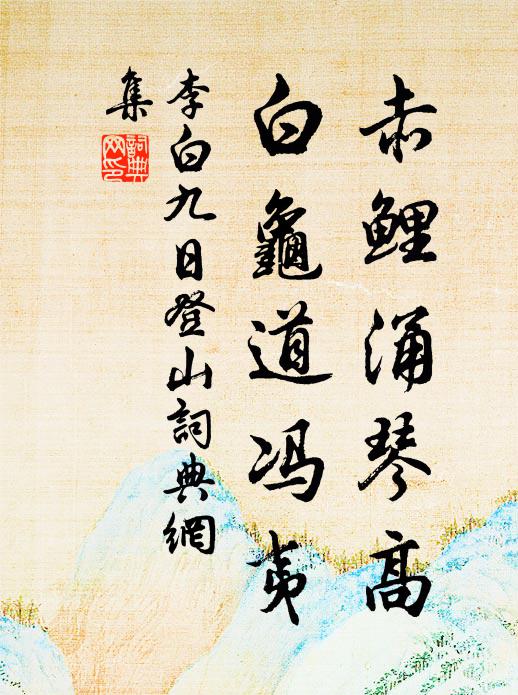 赤鯉涌琴高
白龜道冯夷
李白九日登山詞典網
集
詞典网印